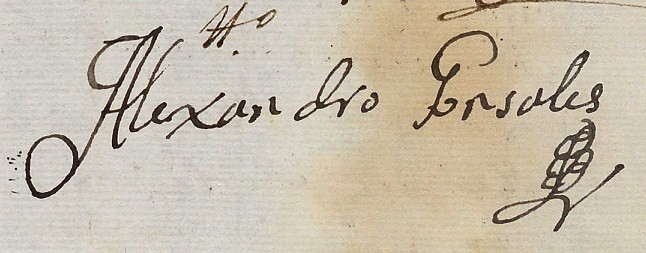 tt.º
Alexandro Gonsales